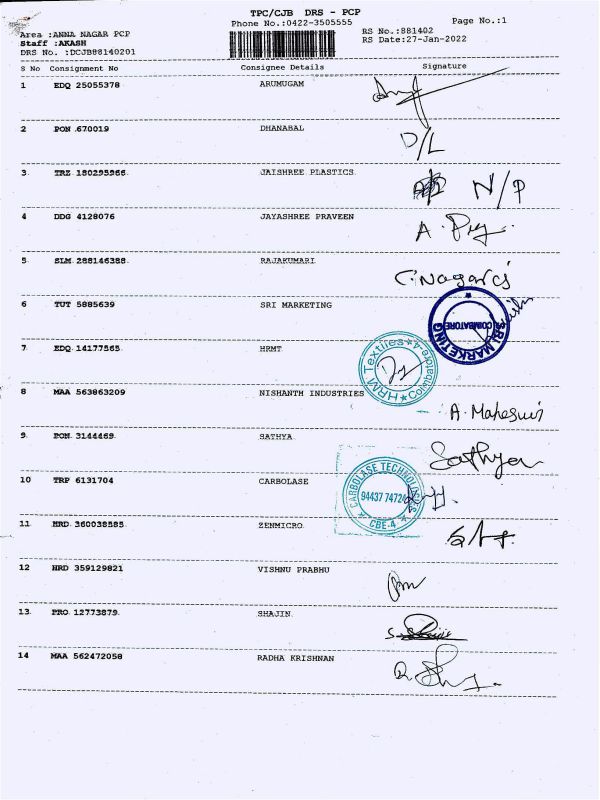 TPC/CJB DRS - PCP
Phone No.:0422-3505555
Page No.:1
Area :ANNA NAGAR PCP
Staff :AKASH
DRS No. :DCJB88140201
RS No.:881402
RS Date:27-Jan-2022
S No Consignment No Consignee Details Signature
1 EDQ 25055378 ARUMUGAM
2 PON 670019 DHANABAL D/L
3 TRZ 180295966 JAISHREE PLASTICS N/P
4 DDG 4128076 JAYASHREE PRAVEEN A.
5 SLM 288146388 RAJAKUMARI
6 TUT 5885639 SRI MARKETING
SRI MARKETING COIMBATORE
7 EDQ 14177565 HRMT
HRM Textiles Coimbatore-4
8 MAA 563863209 NISHANTH INDUSTRIES A.
9 PON 3144469 SATHYA Sathya
10 TRP 6131704 CARBOLASE
CARBOLASE TECHNOLOGIES 94437 74724 CBE-4
11 HRD 360038585 ZENMICRO
12 HRD 359129821 VISHNU PRABHU
13 PRO 12773879 SHAJIN
14 MAA 562472058 RADHA KRISHNAN